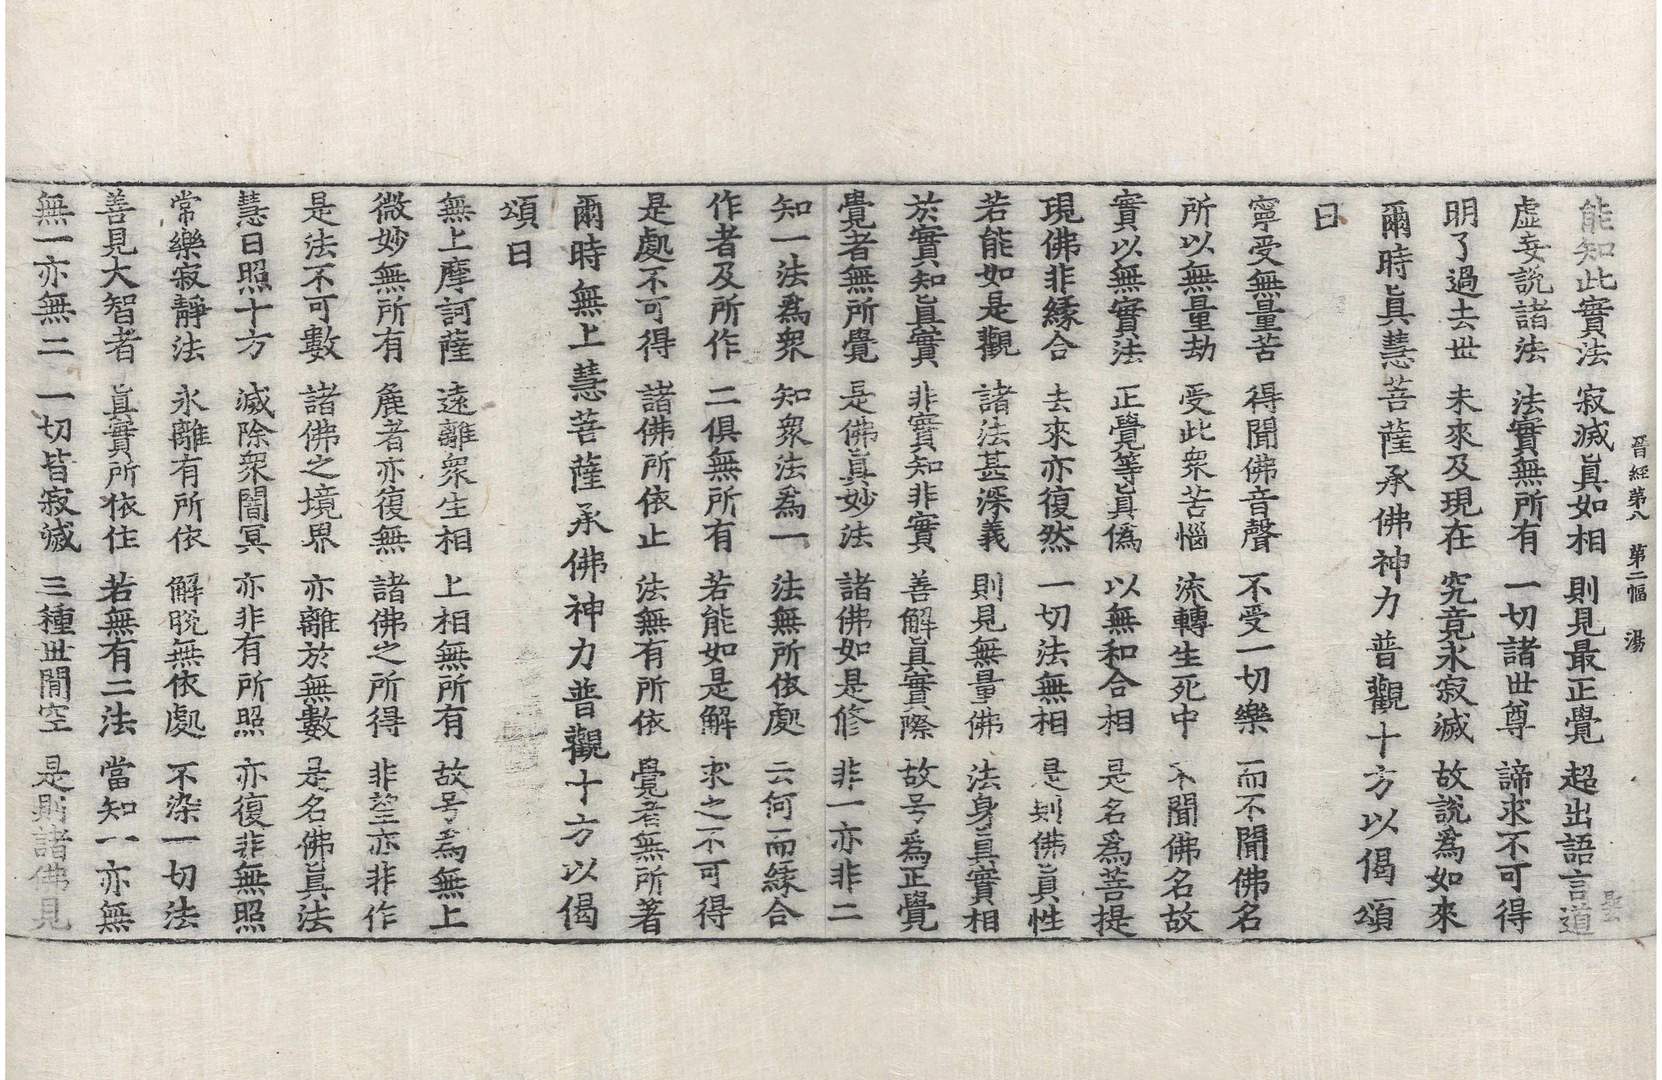 晉經第八 第二幅 湯
能知此實法 寂滅眞如相 則見最正覺 超出語言道
虛妄說諸法 法實無所有 一切諸世尊 諦求不可得
明了過去世 未來及現在 究竟永寂滅 故說爲如來
爾時眞慧菩薩承佛神力普觀十方以偈頌
曰
寧受無量苦 得聞佛音聲 不受一切樂 而不聞佛名
所以無量劫 受此衆苦惱 流轉生死中 不聞佛名故
實以無實法 正覺等眞僞 以無和合相 是名爲菩提
現佛非緣合 去來亦復然 一切法無相 是則佛眞性
若能如是觀 諸法甚深義 則見無量佛 法身眞實相
於實知眞實 非實知非實 善解眞實際 故号爲正覺
覺者無所覺 是佛眞妙法 諸佛如是修 非一亦非二
知一法爲衆 知衆法爲一 法無所依處 云何而緣合
作者及所作 二俱無所有 若能如是解 求之不可得
是處不可得 諸佛所依止 法無有所依 覺者無所著
爾時無上慧菩薩承佛神力普觀十方以偈
頌曰
無上摩訶薩 遠離衆生相 上相無所有 故号爲無上
微妙無所有 麁者亦復無 諸佛之所得 非望亦非作
是法不可數 諸佛之境界 亦離於無數 是名佛眞法
慧日照十方 滅除衆闇冥 亦非有所照 亦復非無照
常樂寂靜法 永離有所依 解脫無依處 不染一切法
善見大智者 眞實所依住 若無有二法 當知一亦無
無一亦無二 一切皆寂滅 三種世閒空 是則諸佛見